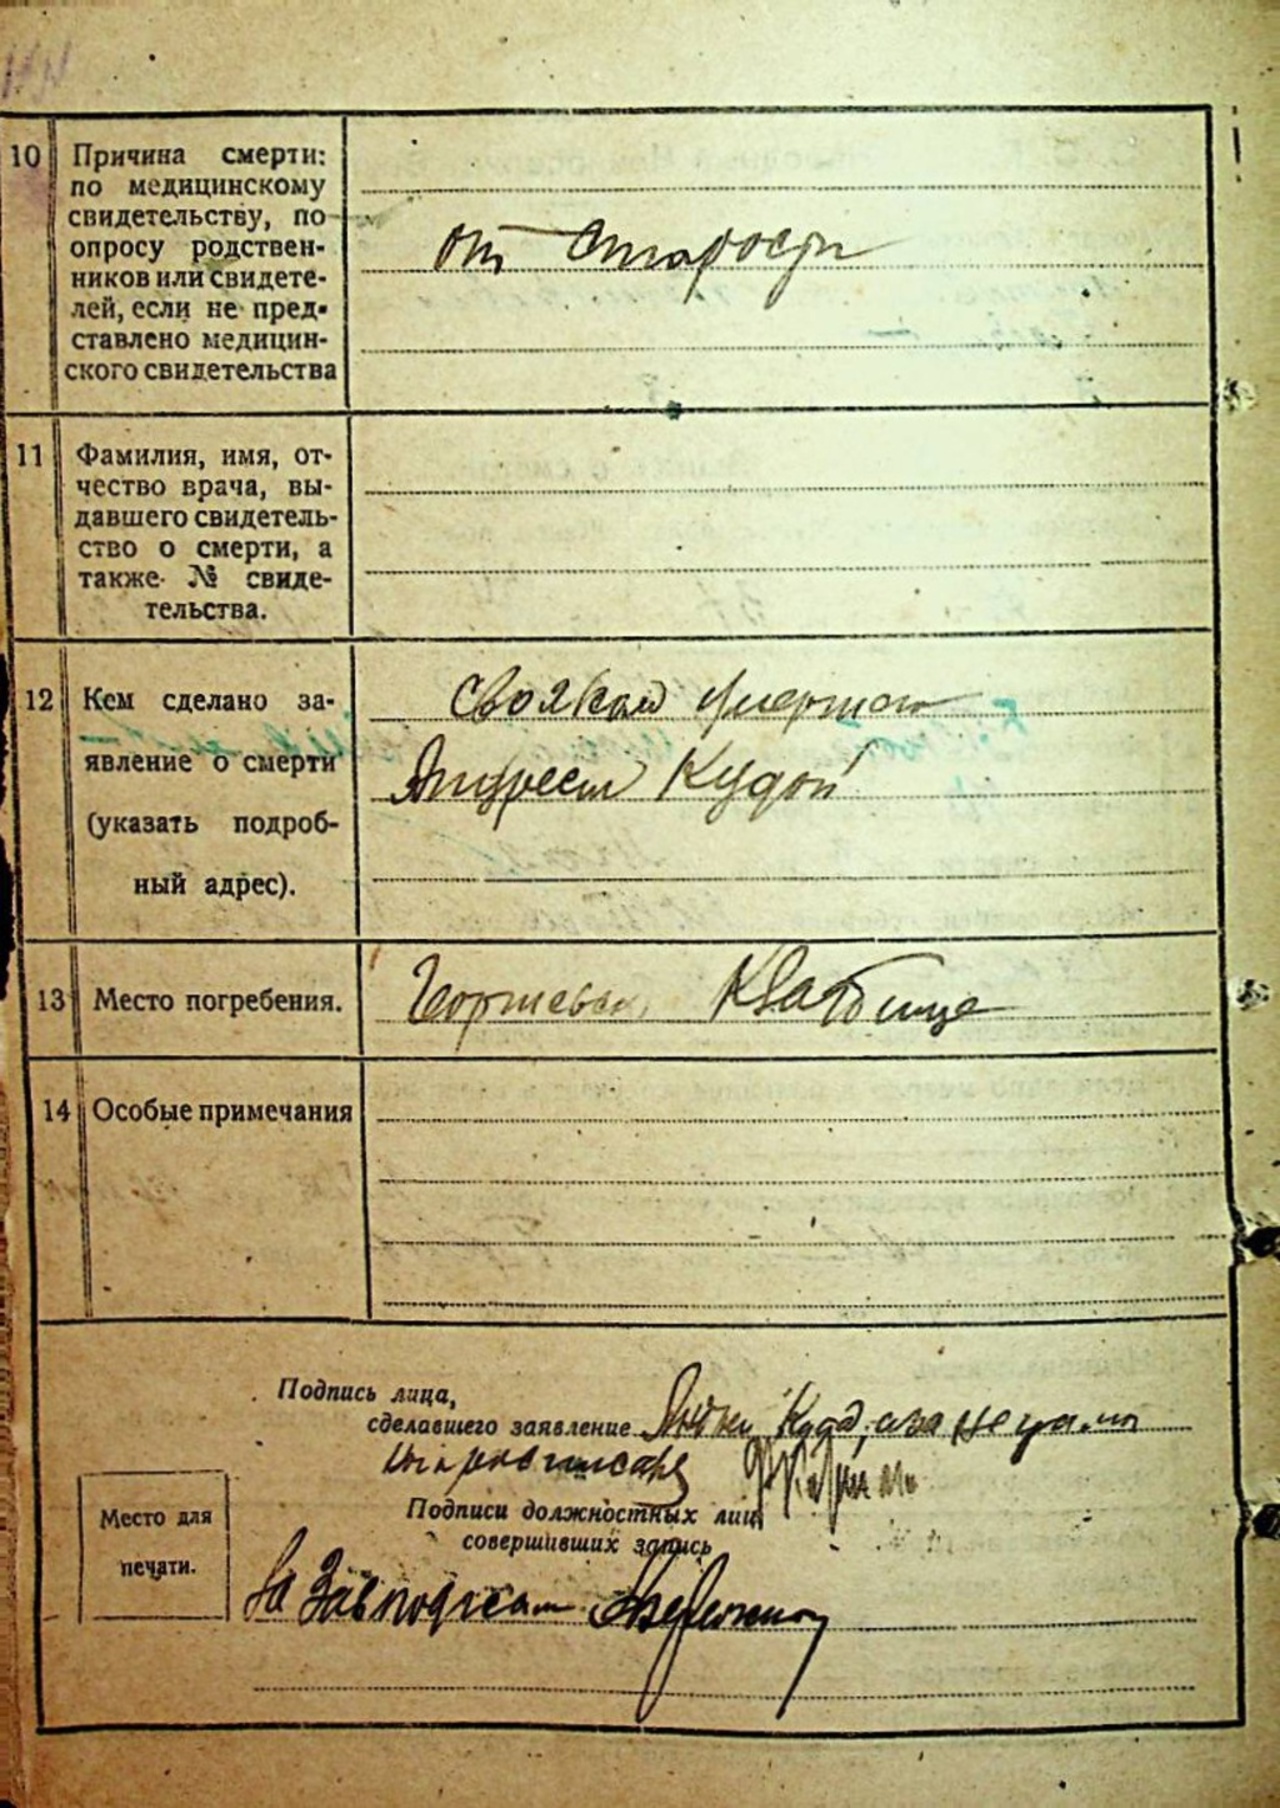 10 Причина смерти:
по медицинскому
свидетельству, по
опросу родствен-
ников или свидете-
лей, если не пред-
ставлено медицин-
ского свидетельства
от старости
11 Фамилия, имя, от-
чество врача, вы-
давшего свидетель-
ство о смерти, а
также № свиде-
тельства.
12 Кем сделано за-
явление о смерти
(указать подроб-
ный адрес).
свояком умершего
Андреем Кудой
13 Место погребения.
кладбище
14 Особые примечания
Подпись лица,
сделавшего заявление Куда, а за не
Подписи должностных лиц
совершивших запись
Место для
печати.
За